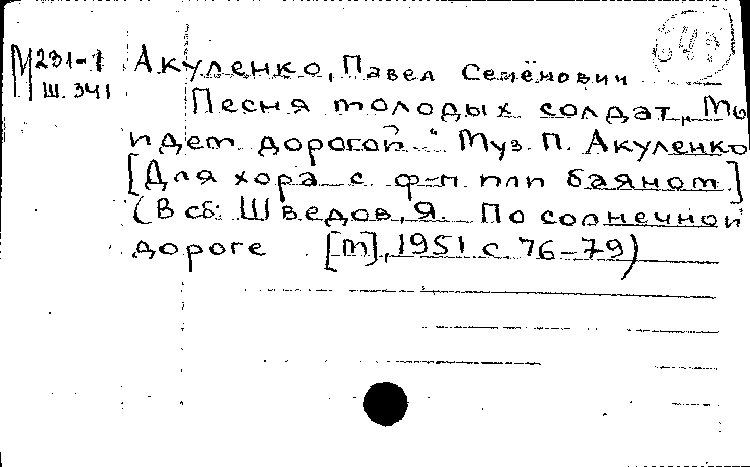 М 231-1
Ш. 341
Акуленко, Павел Семёнович
Песня молодых солдат, "Мы
идем дорогой" Муз. П. Акуленко
[Для хора с ф-п или баяном]
(В сб: Шведов, Я. По солнечной
дороге [М], 1951 с. 76-79)